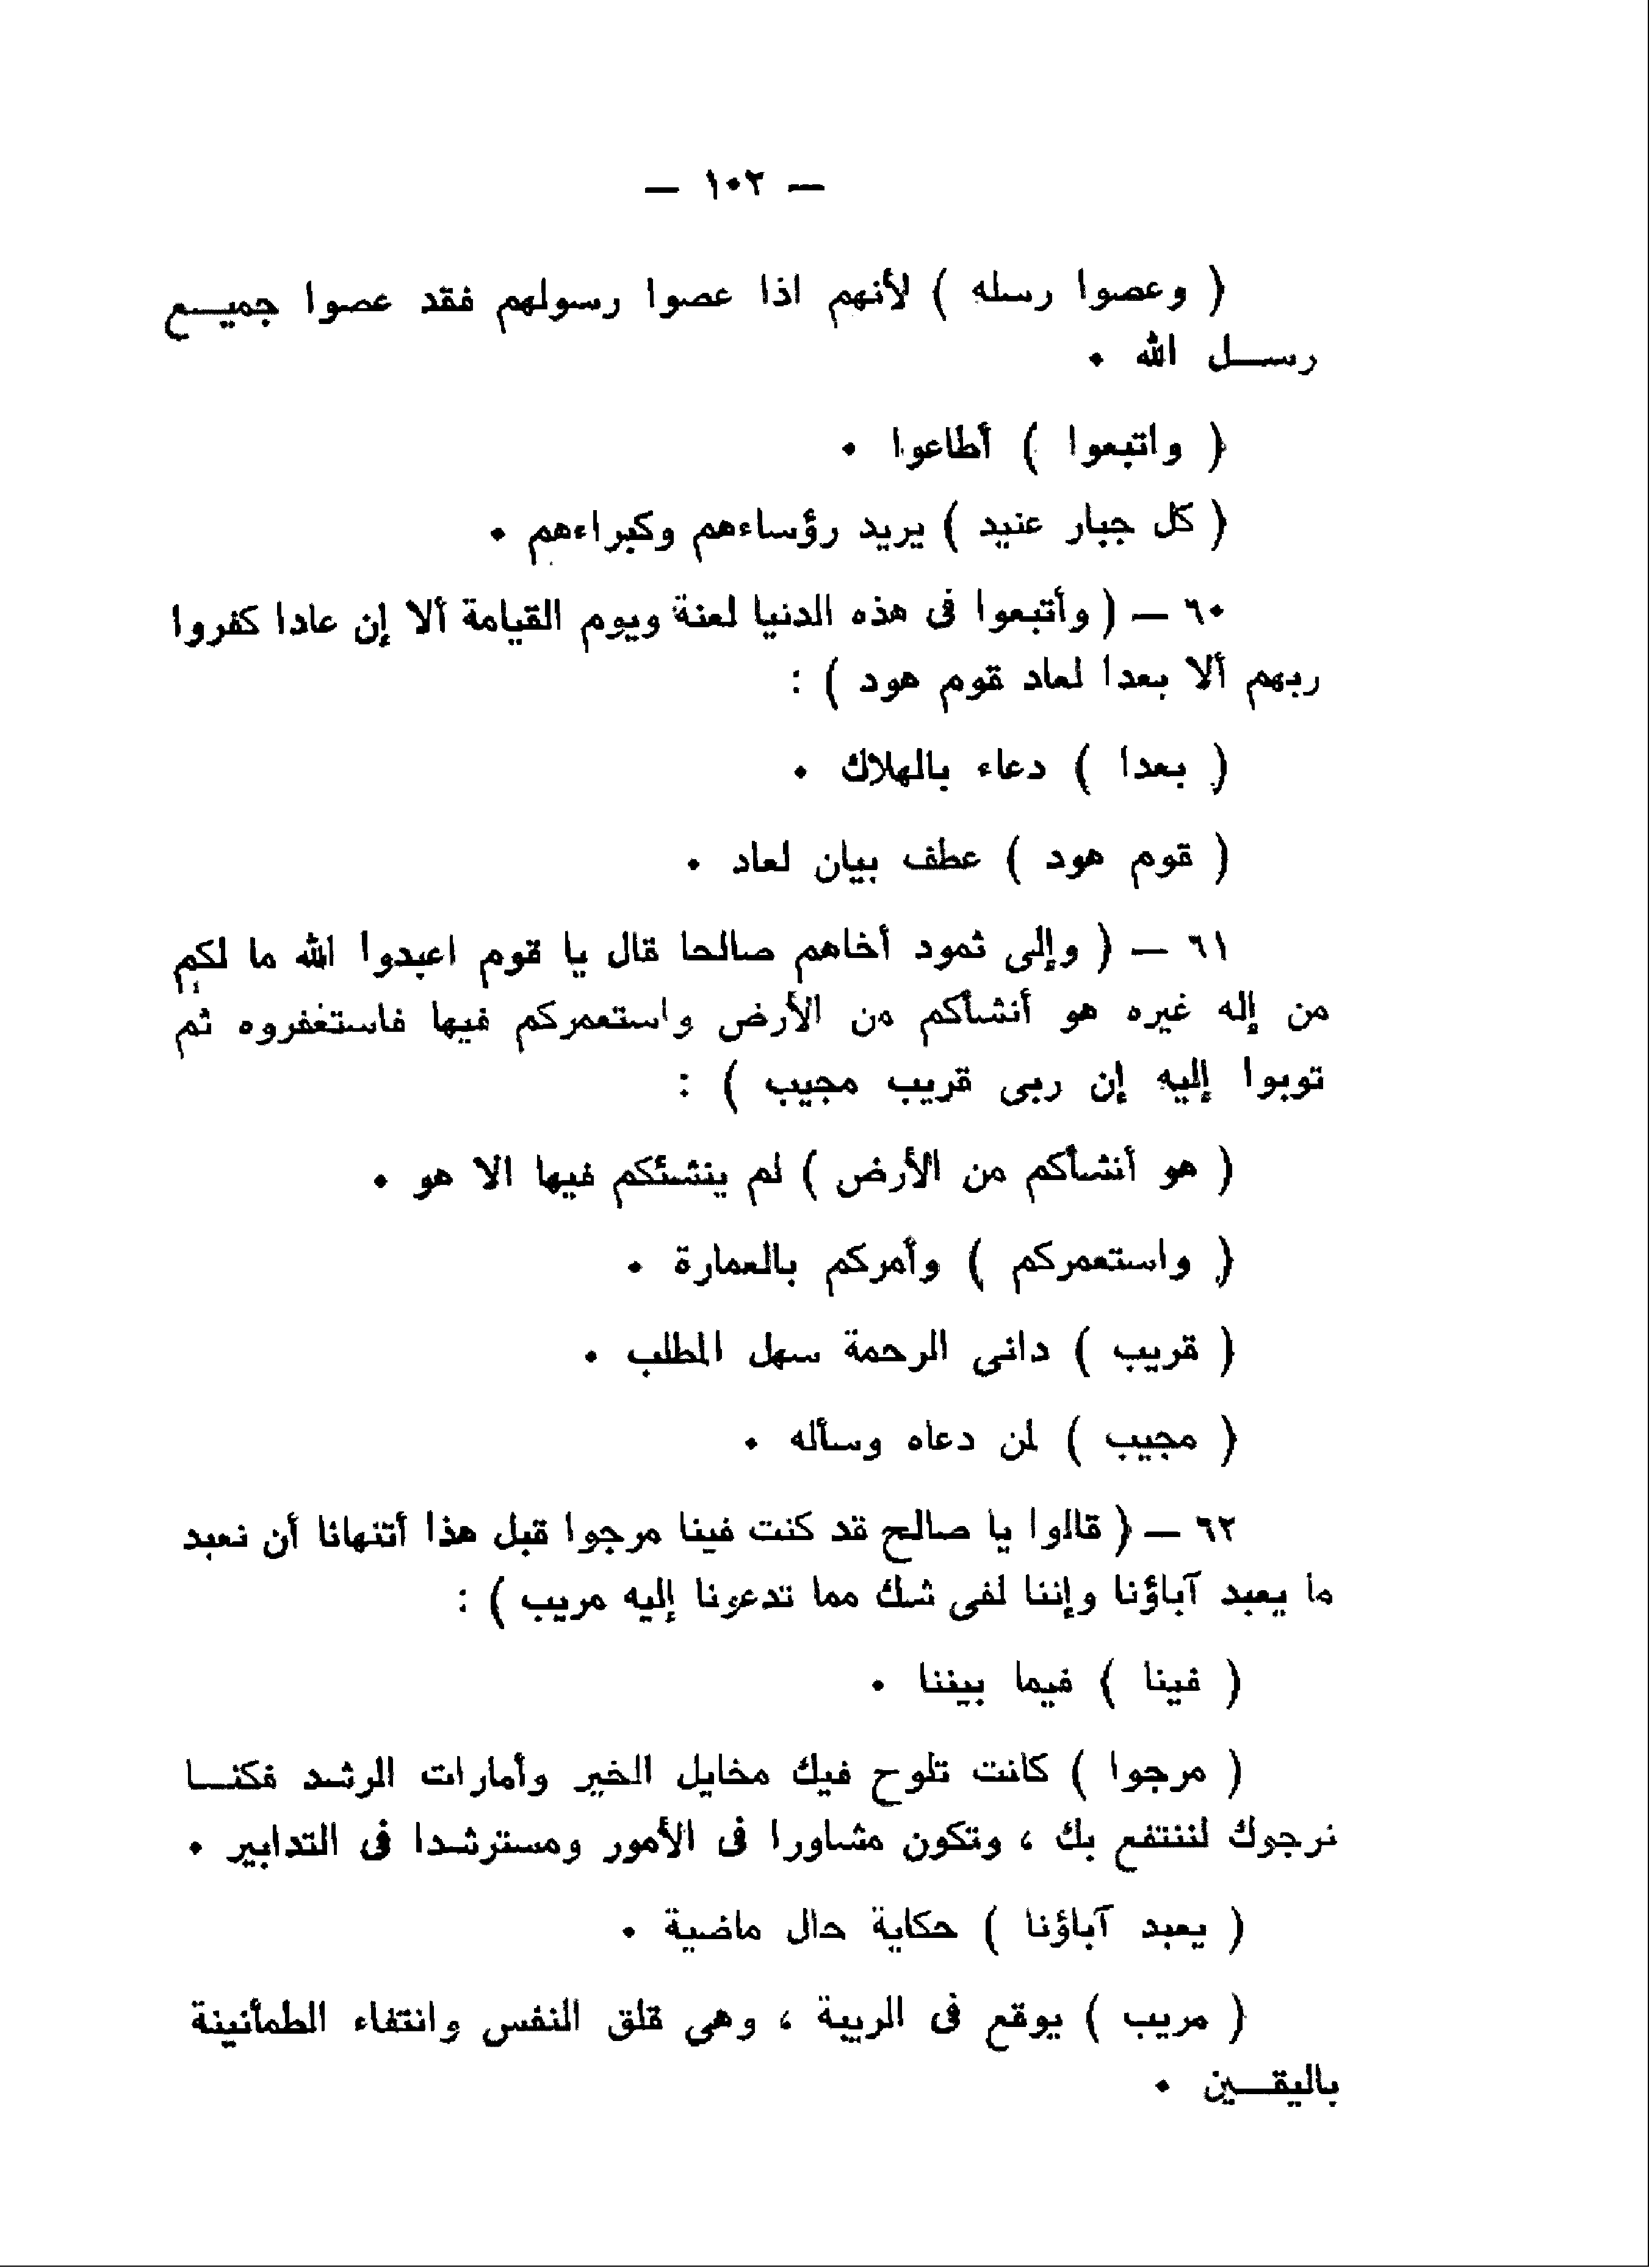 — ١٠٢ —
( وعصوا رسله ) لأنهم اذا عصوا رسولهم فقد عصوا جميـــع
رســـل الله ٠
( واتبعوا ) أطاعوا ٠
( كل جبار عنيد ) يريد رؤساءهم وكبراءهم ٠
٦٠ — ( وأتبعوا فى هذه الدنيا لعنة ويوم القيامة ألا إن عادا كفروا
ربهم ألا بعدا لعاد قوم هود ) :
( بعدا ) دعاء بالهلاك ٠
( قوم هود ) عطف بيان لعاد ٠
٦١ — ( وإلى ثمود أخاهم صالحا قال يا قوم اعبدوا الله ما لكم
من إله غيره هو أنشأكم من الأرض واستعمركم فيها فاستغفروه ثم
توبوا إليه إن ربى قريب مجيب ) :
( هو أنشأكم من الأرض ) لم ينشئكم فيها الا هو ٠
( واستعمركم ) وأمركم بالعمارة ٠
( قريب ) دانى الرحمة سهل المطلب ٠
( مجيب ) لمن دعاه وسأله ٠
٦٢ — ( قالوا يا صالح قد كنت فينا مرجوا قبل هذا أتنهانا أن نعبد
ما يعبد آباؤنا وإننا لفى شك مما تدعونا إليه مريب ) :
( فينا ) فيما بيننا ٠
( مرجوا ) كانت تلوح فيك مخايل الخير وأمارات الرشد فكنـــا
نرجوك لننتفع بك ، وتكون مشاورا فى الأمور ومسترشدا فى التدابير ٠
( يعبد آباؤنا ) حكاية حال ماضية ٠
( مريب ) يوقع فى الريبة ، وهى قلق النفس وانتفاء الطمأنينة
باليقـــين ٠